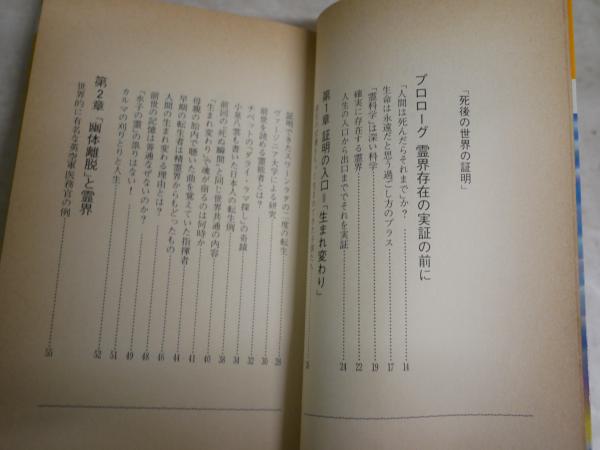 「死後の世界の証明」
プロローグ 霊界存在の実証の前に
「人間は死んだらそれまで」か?……14
生命は永遠だと思う過ごし方のプラス……17
「霊科学」は深い科学……19
確実に存在する霊界……22
人生の入口から出口まででそれを実証……24
第1章 証明の入口=「生まれ変わり」
証明できたスワーンラタの二度の転生……28
ヴァージニア大学による研究……30
前世を読める霊能者とは?……32
チベットの「ダライ・ラマ探し」の奇蹟……34
小泉八雲も書いた日本人の転生例……38
前回の「死ぬ瞬間」と同じ世界共通の内容……40
「生まれ変わり」で魂が宿るのは何時か……41
母親の胎内で聴いた曲を覚えていた指揮者……44
早期の転生者は精霊界からもどったもの……46
人間の生まれ変わる理由とは?……48
前世の記憶は普通なぜないのか?……49
「水子の霊」の祟りはない!……51
カルマの刈りとりと人生……52
第2章 「幽体離脱」と霊界
世界的に有名な英空軍医務官の例……55